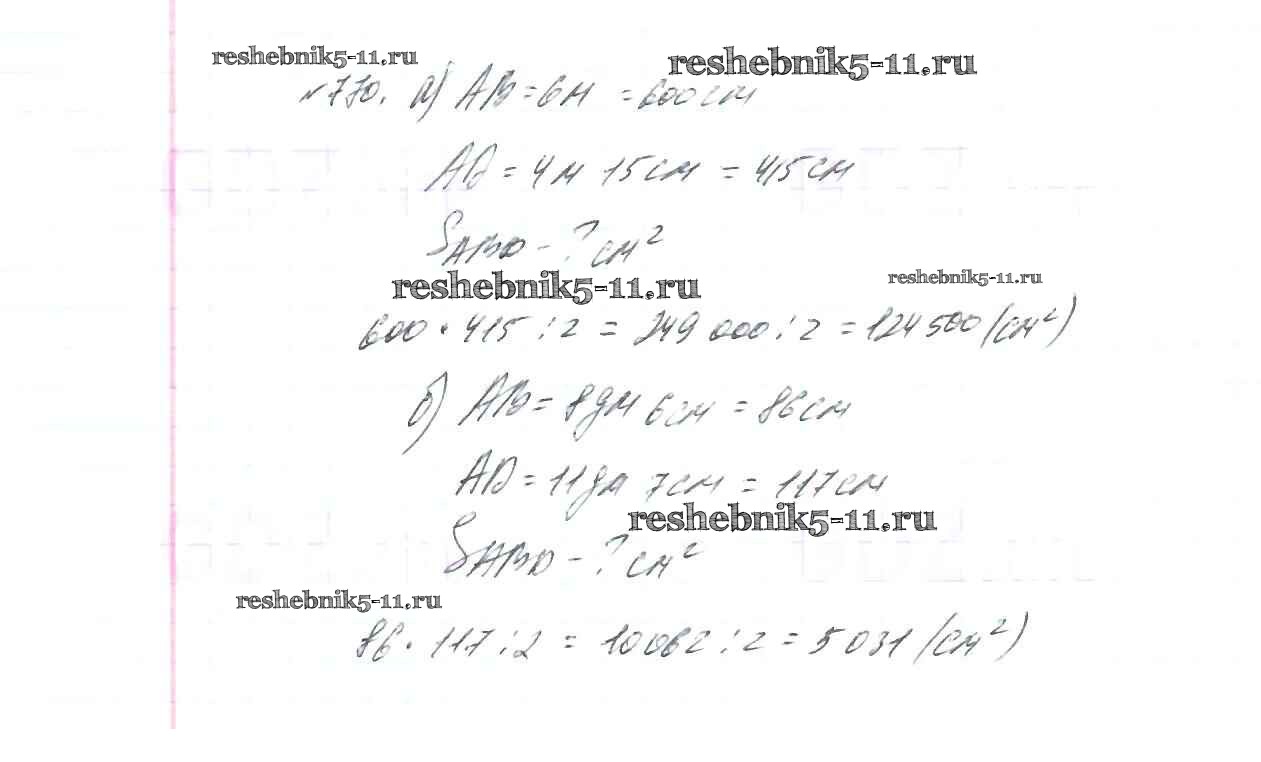 reshebnik5-11.ru
reshebnik5-11.ru
№770. а) AB = 6м = 600 см
AD = 4 м 15 см = 415 см
SABD - ? см²
reshebnik5-11.ru
reshebnik5-11.ru
600 · 415 : 2 = 249 000 : 2 = 124 500 (см²)
б) AB = 8 дм 6 см = 86 см
AD = 11 дм 7 см = 117 см
reshebnik5-11.ru
SABD - ? см²
reshebnik5-11.ru
86 · 117 : 2 = 10062 : 2 = 5 031 (см²)